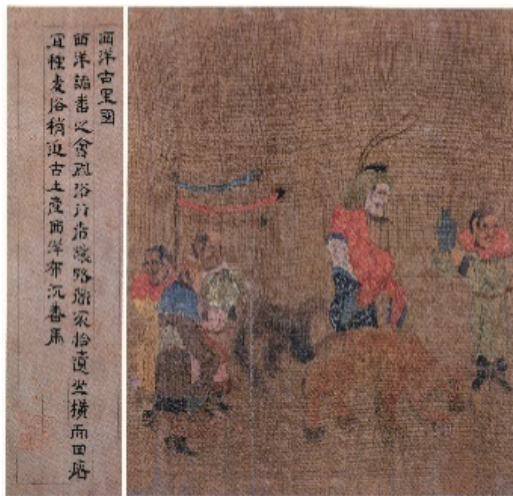 西洋古里國
西洋諸番之會風俗行者讓路拾遺橫而田瘠
宜種麦俗稍近古土產西洋布